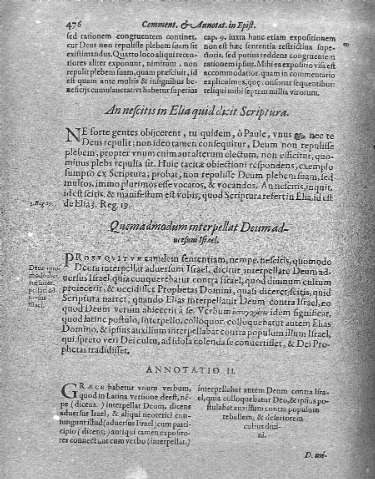 476 Comment. & Annotat. in Epist.
sed rationem congruentem continet,
cur Deus non repulisse plebem suam sit
existimandus. Quare loco aliqui recen-
tiores aliter exponant, nimirum, non
repulit plebem suam, quam præsciuit, id
est quam ante multis & insignibus be-
neficijs cumulauerat habetur superius
cap. 9. iuxta hanc etiam expositionem
non est hæc sententia restrictiua supe-
rioris, sed potius reddens congruentem
rationem ipsius. Mihi ea expositio visa est
accommodatior, quam in commentario
explicaui, quod consonat sequentibus
reliqui mihi septem millia virorum.
An nescitis in Elia quid dicit Scriptura.
NE forte gentes obijcerent, tu quidem, ô Paule, vnus es, nec te
Deus repulit: non ideo tamen consequitur, Deum non repulisse
plebem, propter vnum enim aut alterum electum, non efficitur, quo-
minus plebs repulsa sit. Huic tacitæ obiectioni respondens, exemplo
sumpto ex Scriptura, probat, non repulisse Deum plebem suam, sed
multos, immo plurimos esse vocatos, & vocandos. An nescitis, inquit,
id est scitis, & manifestum est vobis, quod Scriptura refert in Elia, id est
de Elia 3. Reg. 19.
3. Reg. 19.
Quemadmodum interpellat Deum ad-
uersum Israel.
PROSEQVITVR eamdem sententiam, nempe, nescitis, quomodo
Deum interpellat aduersum Israel, dicitur interpellare Deum ad-
uersus Israel, quia conquerebatur contra Israel, quod diuinum cultum
proiecerit, & occidisset Prophetas Domini, quasi diceret, scitis, quid
Scriptura narret, quando Elias interpellauit Deum contra Israel, eo
quod Deum verum abiecerit à se. Verbum idem significat,
quod Latine postulo, interpello, colloquor. colloquebatur autem Elias
Domino, & ipsius auxilium interpellabat contra populum illum Israel,
qui spreto veri Dei cultu, ad idola colenda se conuertisset, & Dei Pro-
phetas tradidisset.
ANNOTATIO II.
GRÆCE habetur vnum verbum,
quod in Latina versione deest, nem-
pe (dicens) interpellat Deum, dicens
aduersus Israel, & aliqui neoterici con-
iungunt illud (aduersus Israel) cum parti-
cipio (dicens) antiqui tamen exposito-
res connectunt cum verbo (interpellat)
interpellabat autem Deum contra Isra-
el, quia colloquebatur Deo, & ipsius po-
stulabat auxilium contra populum
rebellem, & desertorem
cultus diui-
ni.
D. uni-